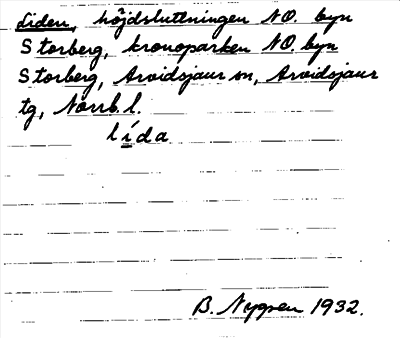 Liden, höjdsluttningen NO. byn
Storberg, kronoparken NO. byn
Storberg, Arvidsjaur sn, Arvidsjaur
tg, Norrb. l.
lída
B. Nygren 1932.